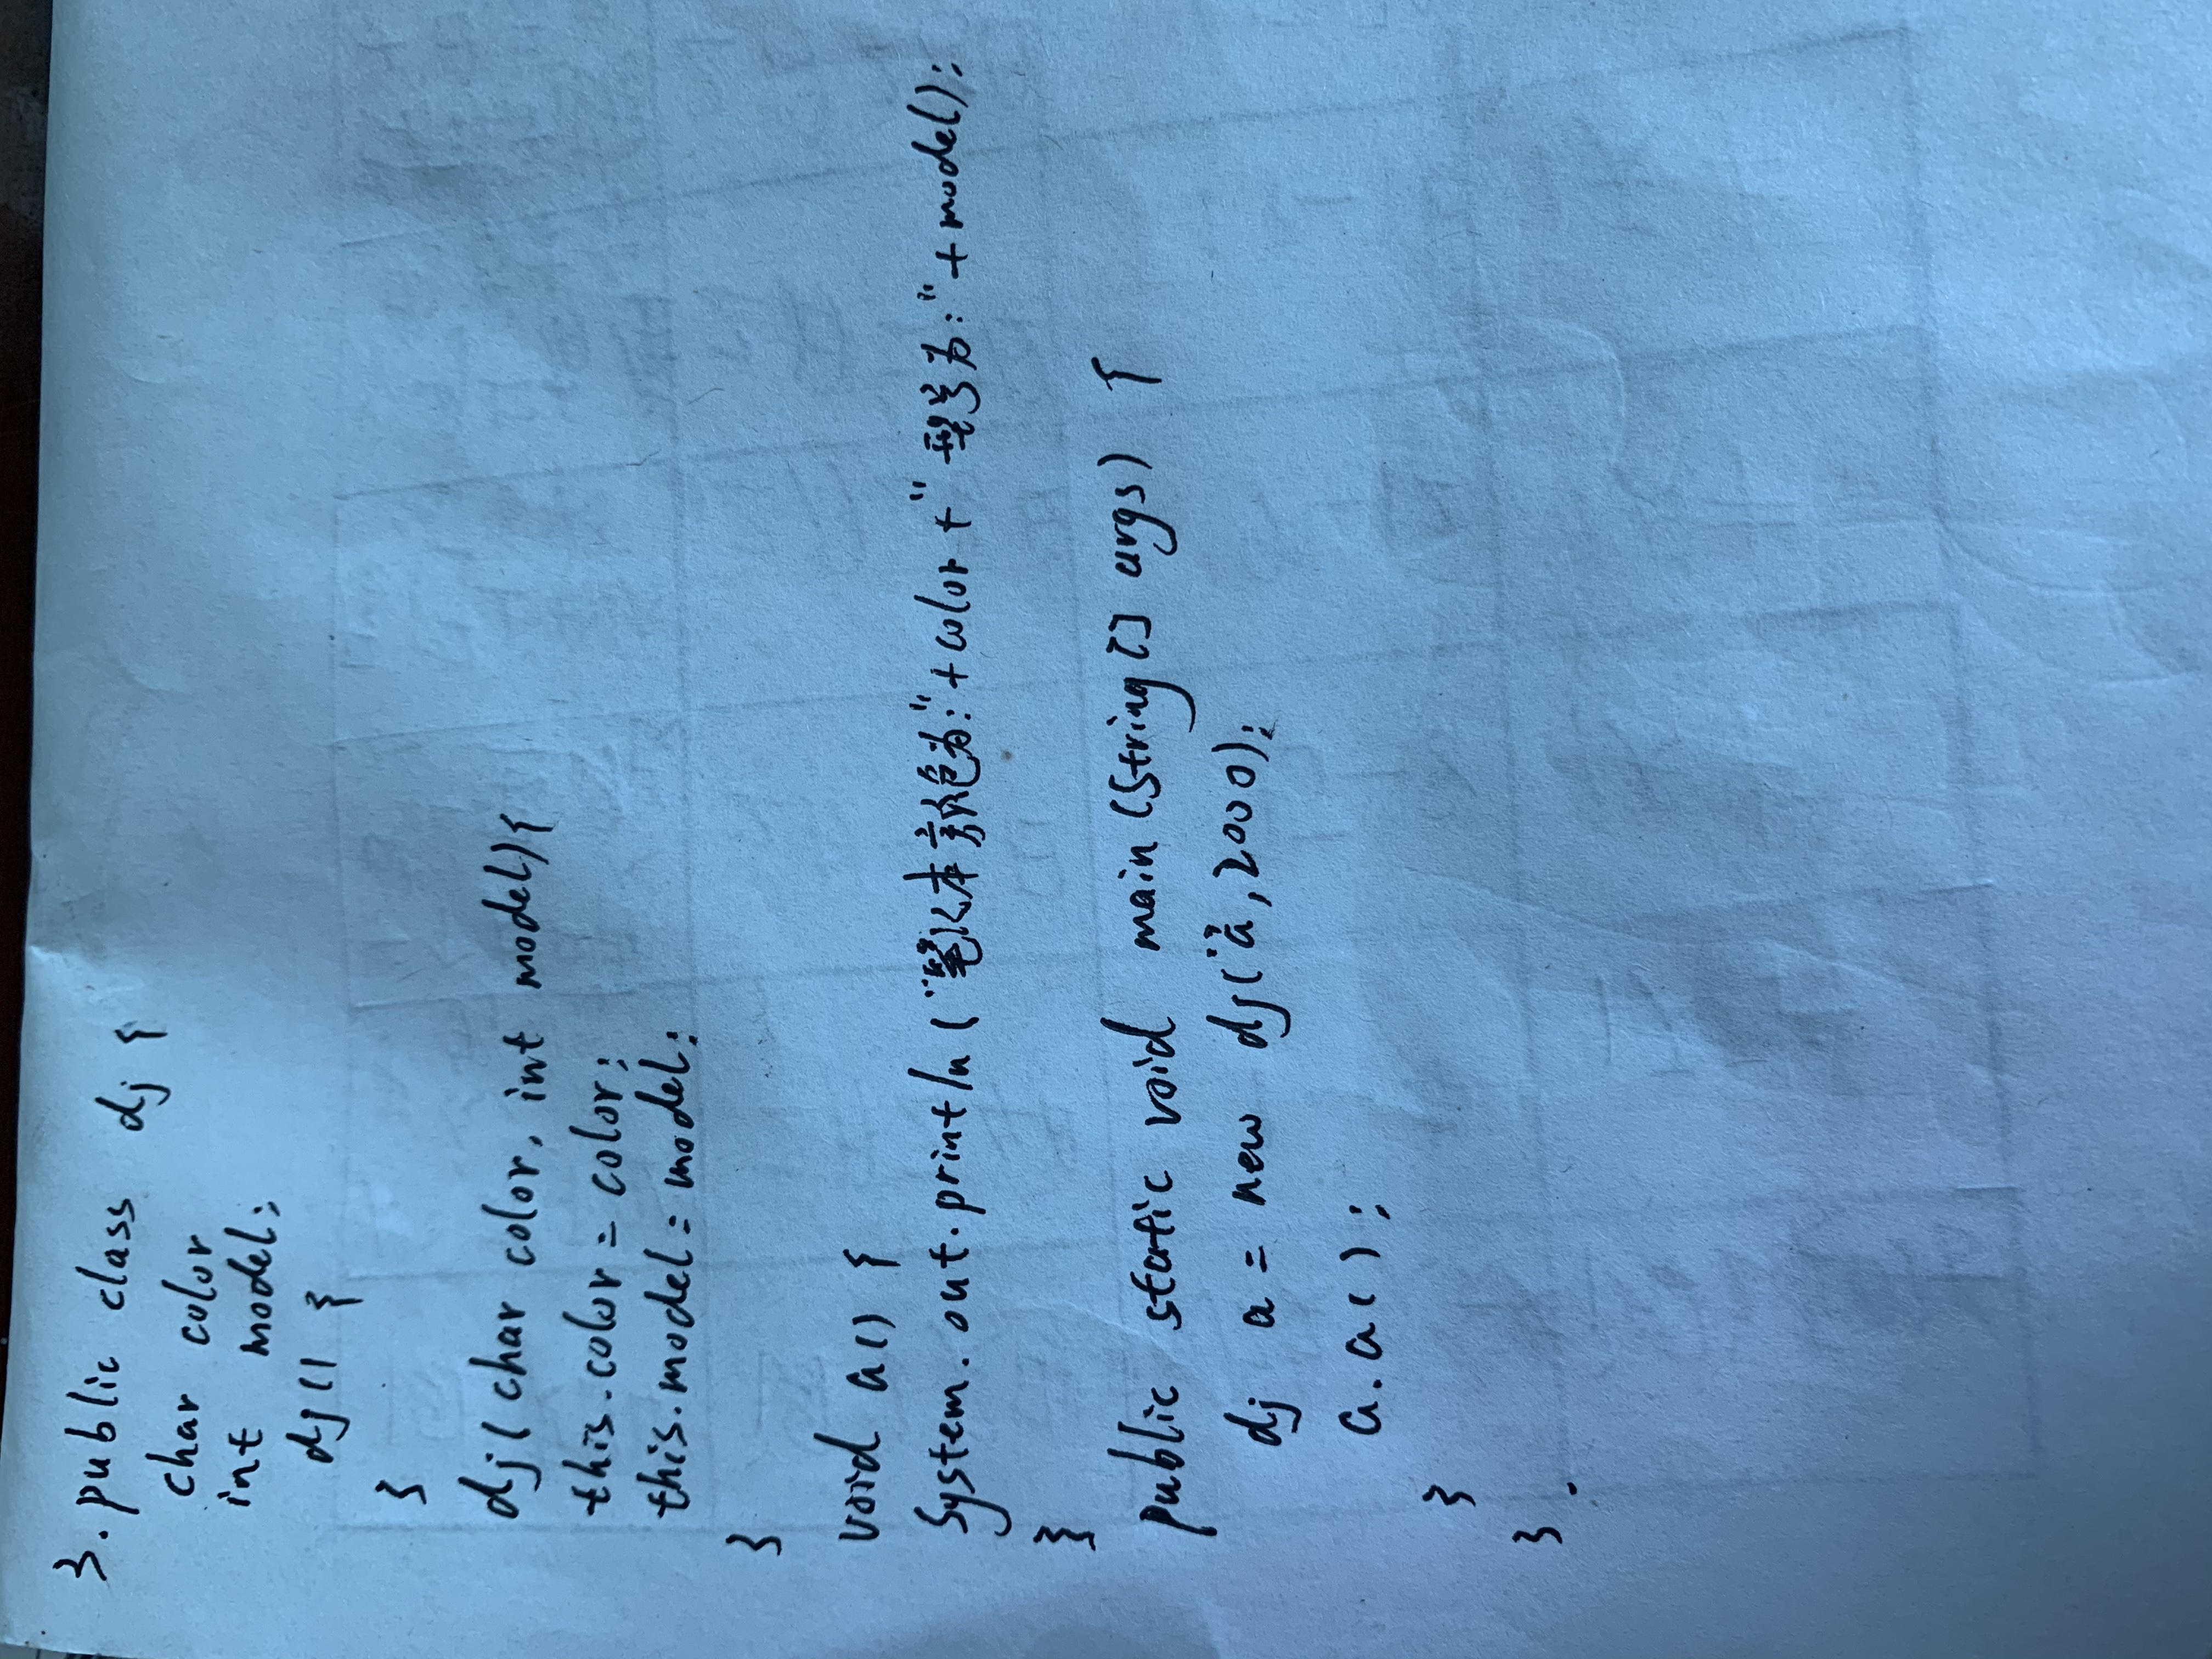 3. public class dj {
char color
int model;
dj() {
}
dj(char color, int model){
this.color = color;
this.model = model;
}
void a() {
System.out.println("笔记本颜色为:"+color+" 型号为:"+model);
}
public static void main (String[] args) {
dj a = new dj('a',2000);
a.a();
}
}.